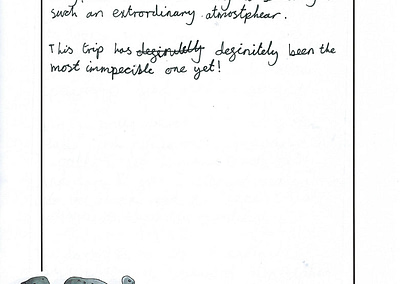 such an extrordinary atmostphear.
This trip has deginitelly deginitely been the
most immpecible one yet!